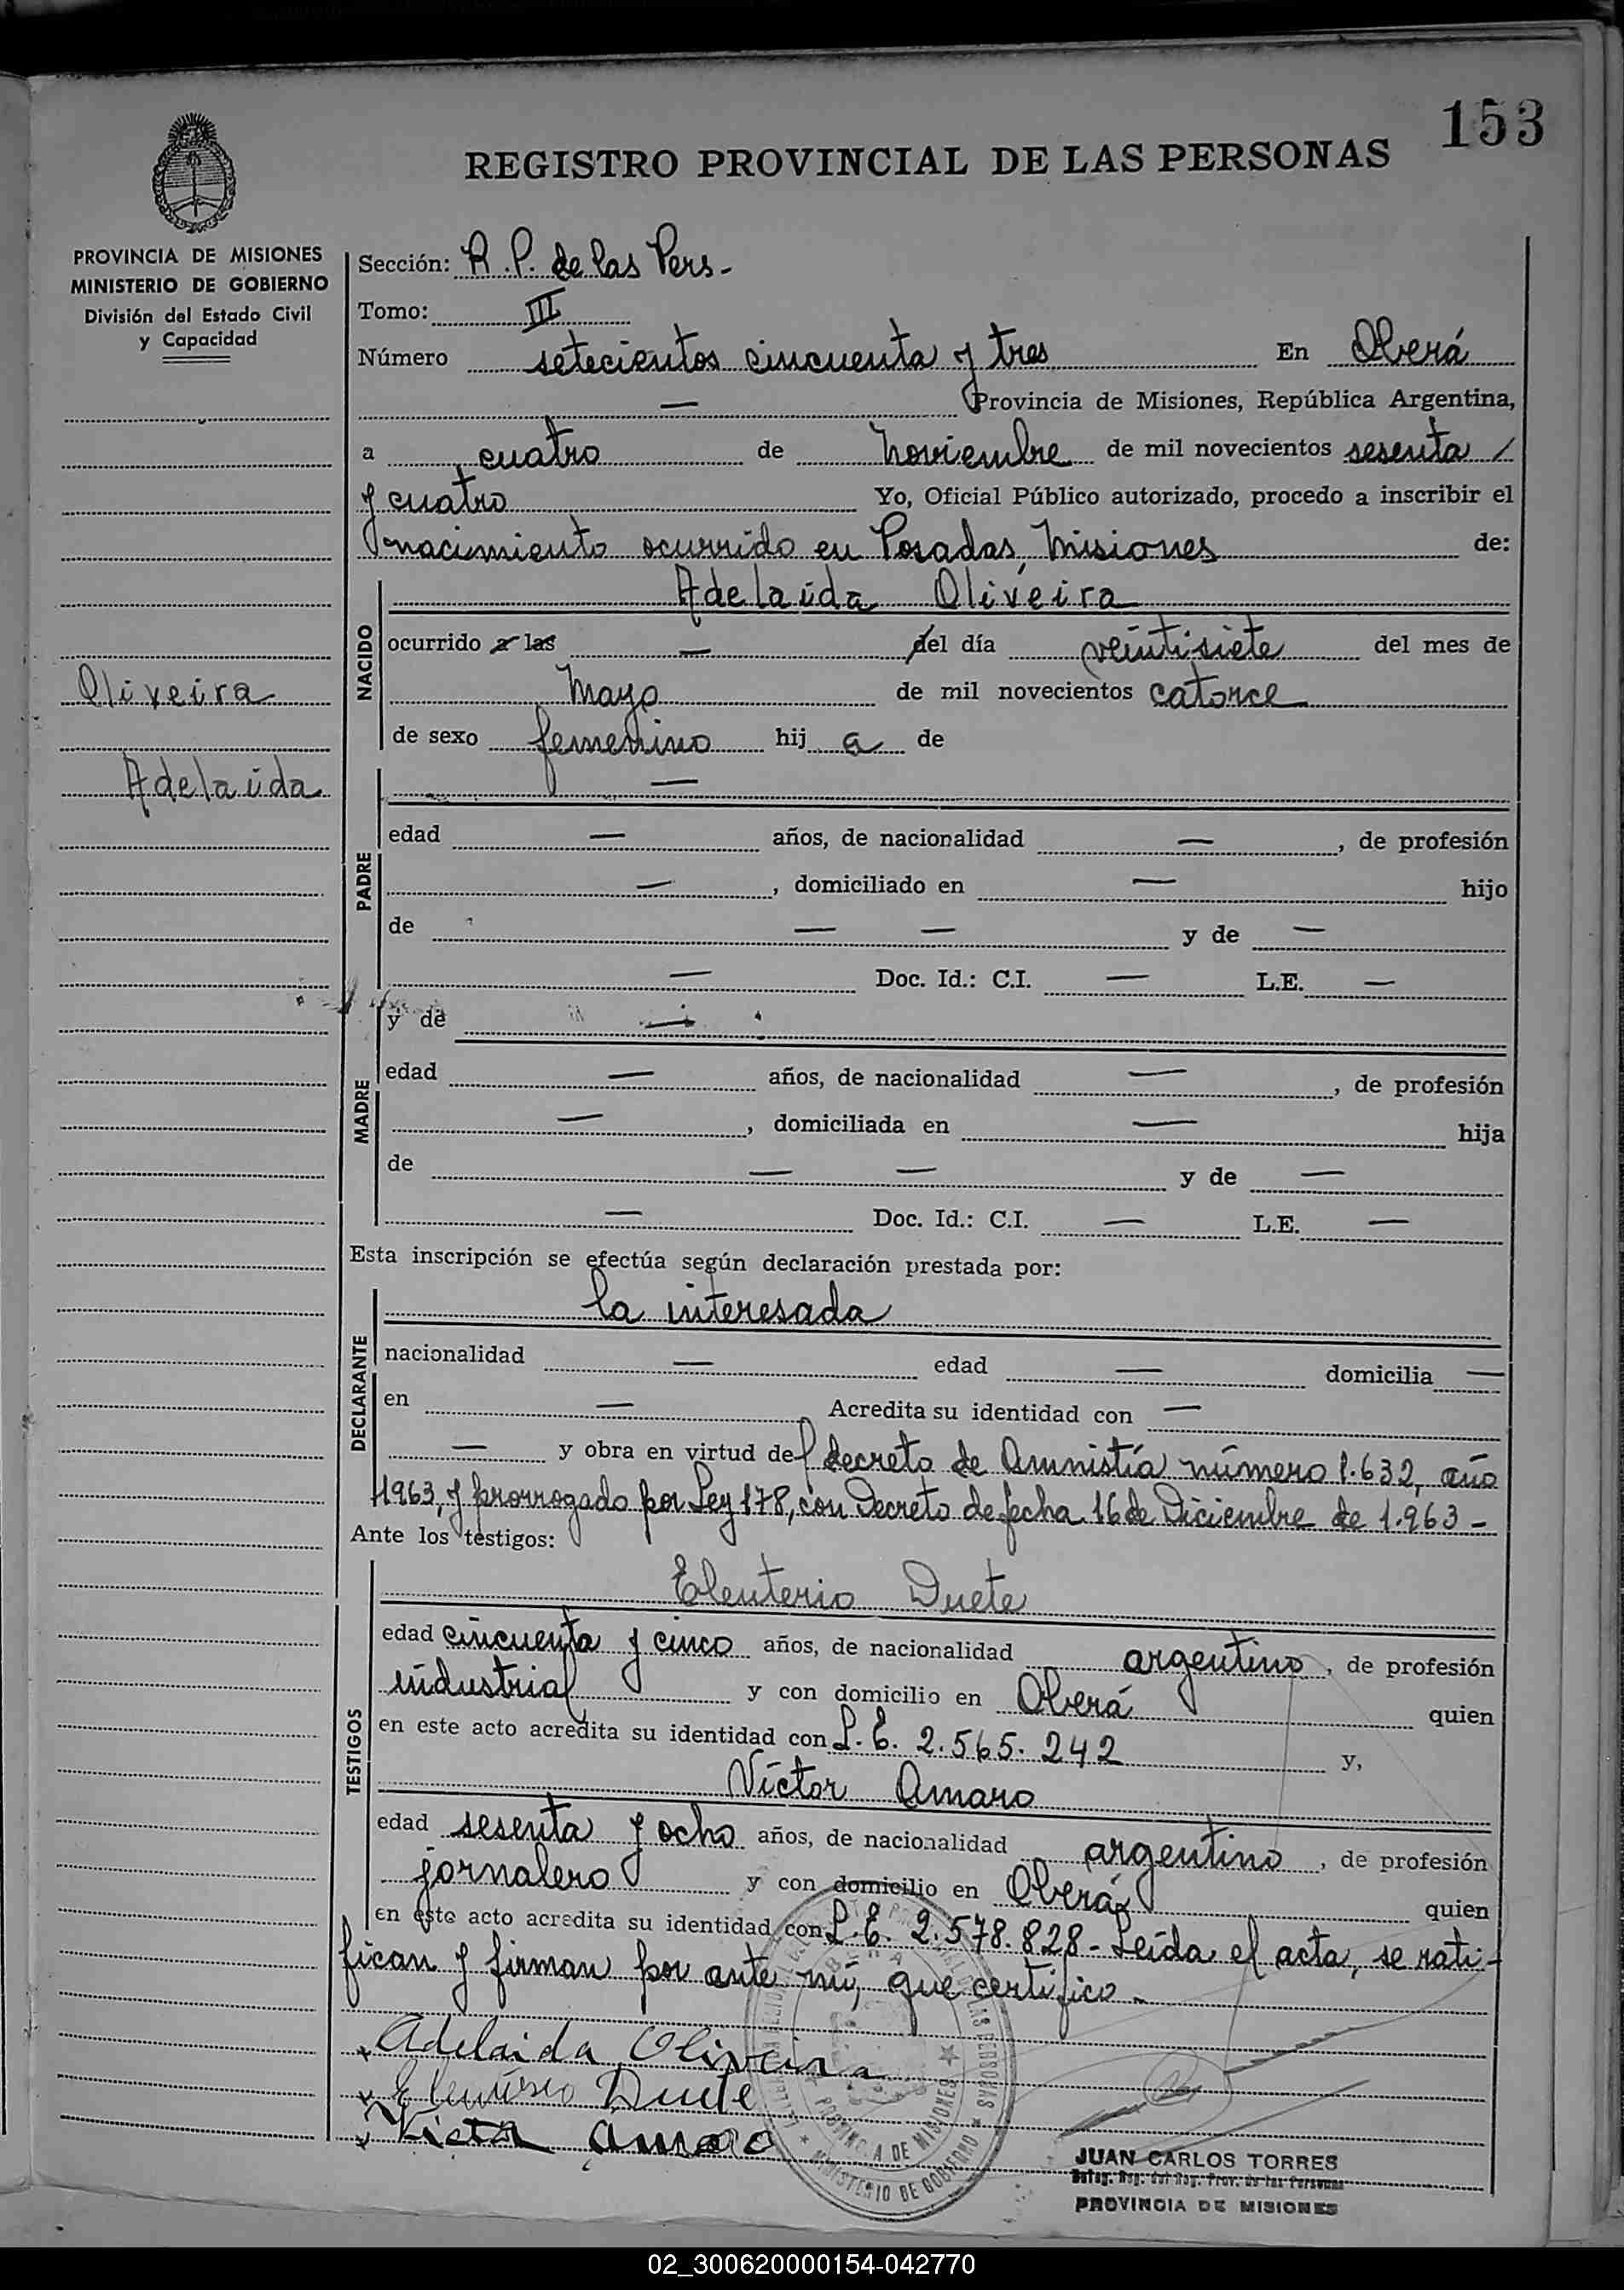 153
REGISTRO PROVINCIAL DE LAS PERSONAS
PROVINCIA DE MISIONES
MINISTERIO DE GOBIERNO
División del Estado Civil
y Capacidad
Oliveira
Adelaida
Sección: R.P. de las Pers-
Tomo: III
Número setecientos cincuenta y tres En Oberá
— Provincia de Misiones, República Argentina,
a cuatro de Noviembre de mil novecientos sesenta /
y cuatro Yo, Oficial Público autorizado, procedo a inscribir el
nacimiento ocurrido en Posadas, Misiones de:
NACIDO
Adelaida Oliveira
ocurrido a las — del día veintisiete del mes de
Mayo de mil novecientos catorce
de sexo femenino hij a de
PADRE
—
edad — años, de nacionalidad — , de profesión
— , domiciliado en — hijo
de — — y de —
— Doc. Id.: C.I. — L.E. —
MADRE
y de —
edad — años, de nacionalidad — , de profesión
— , domiciliada en — hija
de — — y de —
— Doc. Id.: C.I. — L.E. —
Esta inscripción se efectúa según declaración prestada por:
DECLARANTE
la interesada
nacionalidad — edad — domicilia —
en — Acredita su identidad con —
— y obra en virtud del decreto de Amnistía número 1.632, año
1963, y prorrogado por Ley 178, con Decreto de fecha 16 de Diciembre de 1.963 -
Ante los testigos:
TESTIGOS
Eleuterio Duete
edad cincuenta y cinco años, de nacionalidad argentino , de profesión
industrial y con domicilio en Oberá quien
en este acto acredita su identidad con L.E. 2.565.242 y,
Víctor Amaro
edad sesenta y ocho años, de nacionalidad argentino , de profesión
jornalero y con domicilio en Oberá quien
en este acto acredita su identidad con L.E. 2.578.828 - Leída el acta, se rati-
fican y firman por ante mí, que certifico -
x Adelaida Oliveira
x Eleuterio Duete
x Victor Amaro
PROVINCIA DE MISIONES
MINISTERIO DE GOBIERNO
JUAN CARLOS TORRES
Reg. Prov. de las Personas
PROVINCIA DE MISIONES
02_300620000154-042770